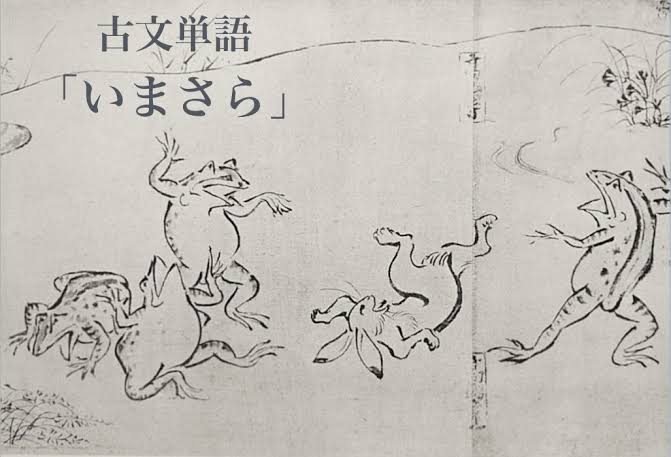 古文単語
「いまさら」